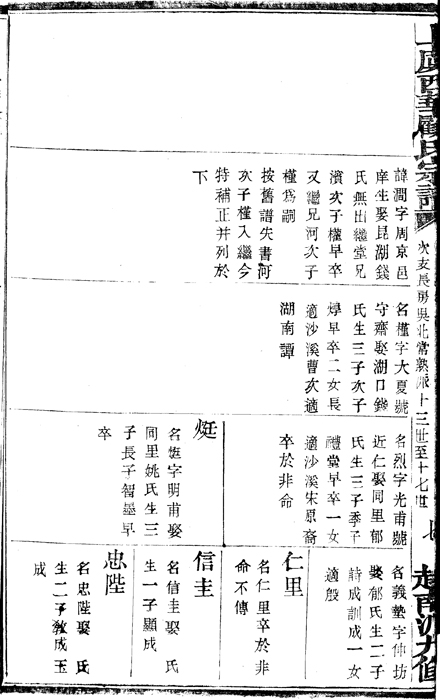 上虞西華顧氏宗譜
次支長房吳北常熟派十三世至十七世
諱潤字周京邑
庠生娶昆湖錢
氏無出繼堂兄
濱次子權早卒
又繼兄河次子
槿為嗣
按舊譜失書河
次子槿入繼今
特補正并列於
下
名槿字大夏號
守齋娶湖口錢
氏生三子次子
㷼早卒二女長
適沙溪曹次適
湖南譚
名烈字光甫號
近仁娶同里郁
氏生三子季子
禮堂早卒一女
適沙溪宋原裔
卒於非命
烶
名烶字明甫娶
同里姚氏生三
子長子智墨早
卒
名義墊字仲坊
娶郁氏生二子
詩成訓成一女
適殷
仁里
名仁里卒於非
命不傳
信圭
名信圭娶 氏
生一子顯成
忠陛
名忠陛娶 氏
生二子敎成玉
成